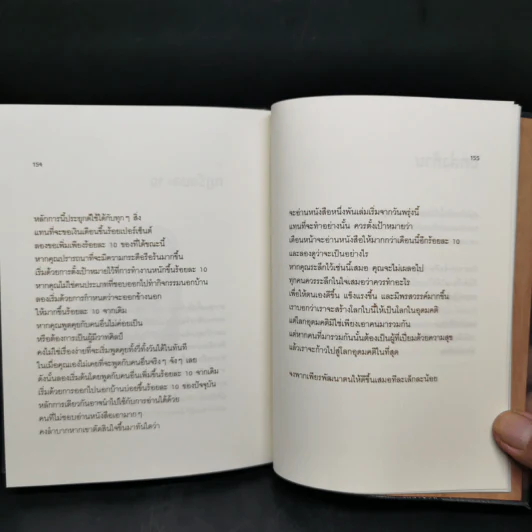 194
หลักการนี้ประยุกต์ใช้ได้กับทุกๆ สิ่ง
แทนที่จะขอเงินเดือนขึ้นร้อยเปอร์เซ็นต์
ลองขอเพิ่มเพียงร้อยละ 10 ของที่ได้ขณะนี้
หากคุณปรารถนาที่จะมีความกระตือรือร้นมากขึ้น
เริ่มด้วยการตั้งเป้าหมายไว้ที่การทำงานหนักขึ้นร้อยละ 10
หากคุณไม่ใช่คนประเภทที่ชอบออกไปทำกิจกรรมนอกบ้าน
ลองเริ่มด้วยการกำหนดว่าจะออกข้างนอก
ให้มากขึ้นร้อยละ 10 จากเดิม
หากคุณพูดคุยกับคนอื่นไม่ค่อยเป็น
หรือต้องการเป็นผู้มีวาทศิลป์
คงไม่ใช่เรื่องง่ายที่จะเริ่มพูดคุยทั้งวี่ทั้งวันได้ในทันที
ในเมื่อคุณเองไม่เคยที่จะพูดกับคนอื่นจริงๆ จังๆ เลย
ดังนั้นลองเริ่มต้นโดยพูดกับคนอื่นเพิ่มขึ้นร้อยละ 10 จากเดิม
เริ่มด้วยการออกไปนอกบ้านบ่อยขึ้นร้อยละ 10 ของปัจจุบัน
หลักการเดียวกันอาจนำไปใช้กับการอ่านได้ด้วย
คนที่ไม่ชอบอ่านหนังสือเอามากๆ
คงลำบากหากเขาตัดสินใจขึ้นมาทันใดว่า
195
จะอ่านหนังสือหนึ่งพันเล่มเริ่มจากวันพรุ่งนี้
แทนที่จะทำอย่างนั้น ควรตั้งเป้าหมายว่า
เดือนหน้าจะอ่านหนังสือให้มากกว่าเดือนนี้อีกร้อยละ 10
และลองดูว่าจะเป็นอย่างไร
หากคุณระลึกไว้เช่นนี้เสมอ คุณจะไม่เผลอไป
ทุกคนควรระลึกในใจเสมอว่าควรทำอะไร
เพื่อให้ตนเองดีขึ้น แข็งแรงขึ้น และมีพรสวรรค์มากขึ้น
เราบอกว่าเราจะสร้างโลกใบนี้ให้เป็นโลกในอุดมคติ
แต่โลกอุดมคติมิใช่เพียงเอาคนมารวมกัน
แต่หากคนที่มารวมกันนั้นต้องเป็นผู้ที่เปี่ยมด้วยความสุข
แล้วเราจะก้าวไปสู่โลกอุดมคติในที่สุด
จงพากเพียรพัฒนาตนให้ดีขึ้นเสมอทีละเล็กละน้อย